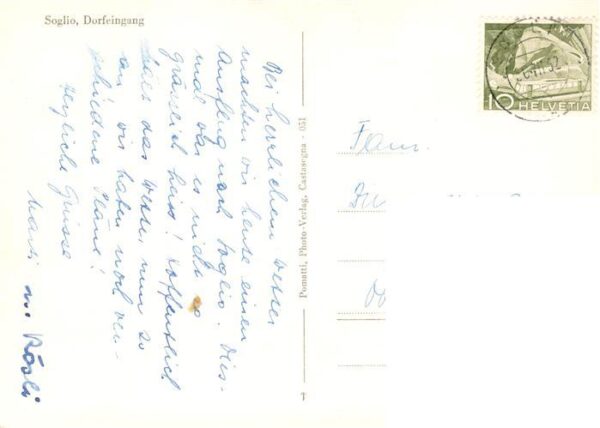 Soglio, Dorfeingang
Bei herrlichem Wetter
machten wir heute einen
Ausflug nach Soglio. Dies-
mal war es nicht so
grässlich heiss! Hoffentlich
hält das Wetter nun so
an, wir haben noch ver-
schiedene Pläne!
Herzliche Grüsse
u. Rösli
Pomatti, Photo-Verlag, Castasegna - 051
Fam.
10 HELVETIA